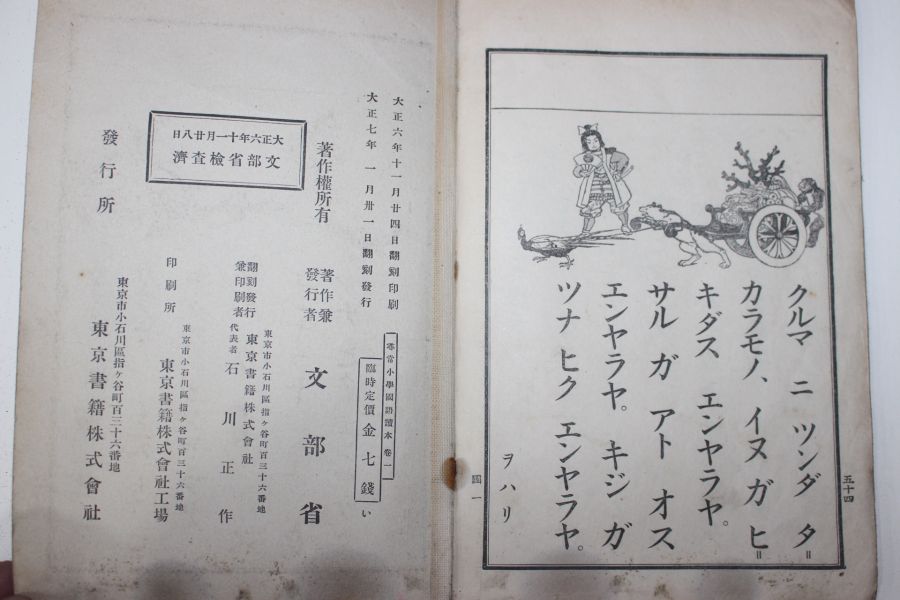 五十四
クルマ ニ ツンダ タ＝
カラモノ、イヌ ガ ヒ＝
キダス エンヤラヤ。
サル ガ アト オス
エンヤラヤ。 キジ ガ
ツナ ヒク エンヤラヤ。
ヲハリ
尋常小學國語讀本 卷一
臨時定價金七錢
い
大正六年十一月廿四日翻刻印刷
大正七年 一月卅一日翻刻發行
著作權所有
著作兼
發行者
文部省
翻刻發行
兼印刷者
東京市小石川區指ヶ谷町百三十六番地
東京書籍株式會社
代表者 石川正作
大正六年十一月廿八日
文部省檢査濟
印刷所
東京市小石川區指ヶ谷町百三十六番地
東京書籍株式會社工場
發行所
東京市小石川區指ヶ谷町百三十六番地
東京書籍株式會社